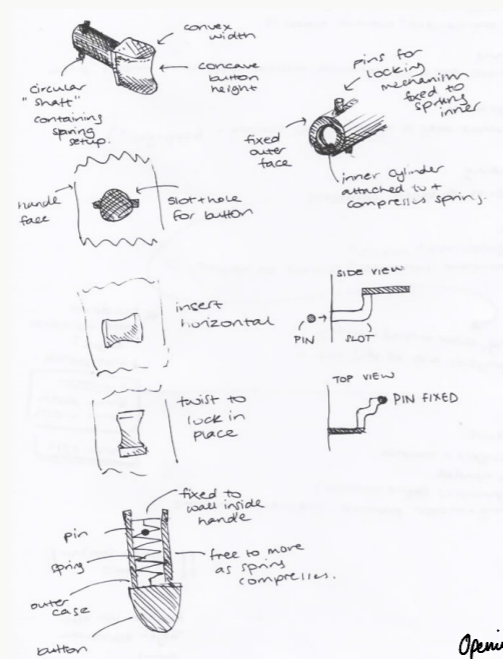 convex
width
concave
button
height
circular
"shaft"
containing
spring
setup.
pins for
locking
mechanism
fixed to
spring
inner
fixed
outer
face
inner cylinder
attached to +
compresses spring.
handle
face
slot + hole
for button
insert
horizontal
SIDE VIEW
PIN
SLOT
twist to
lock in
place
TOP VIEW
PIN FIXED
fixed to
wall inside
handle
pin
spring
outer
case
button
free to move
as spring
compresses.